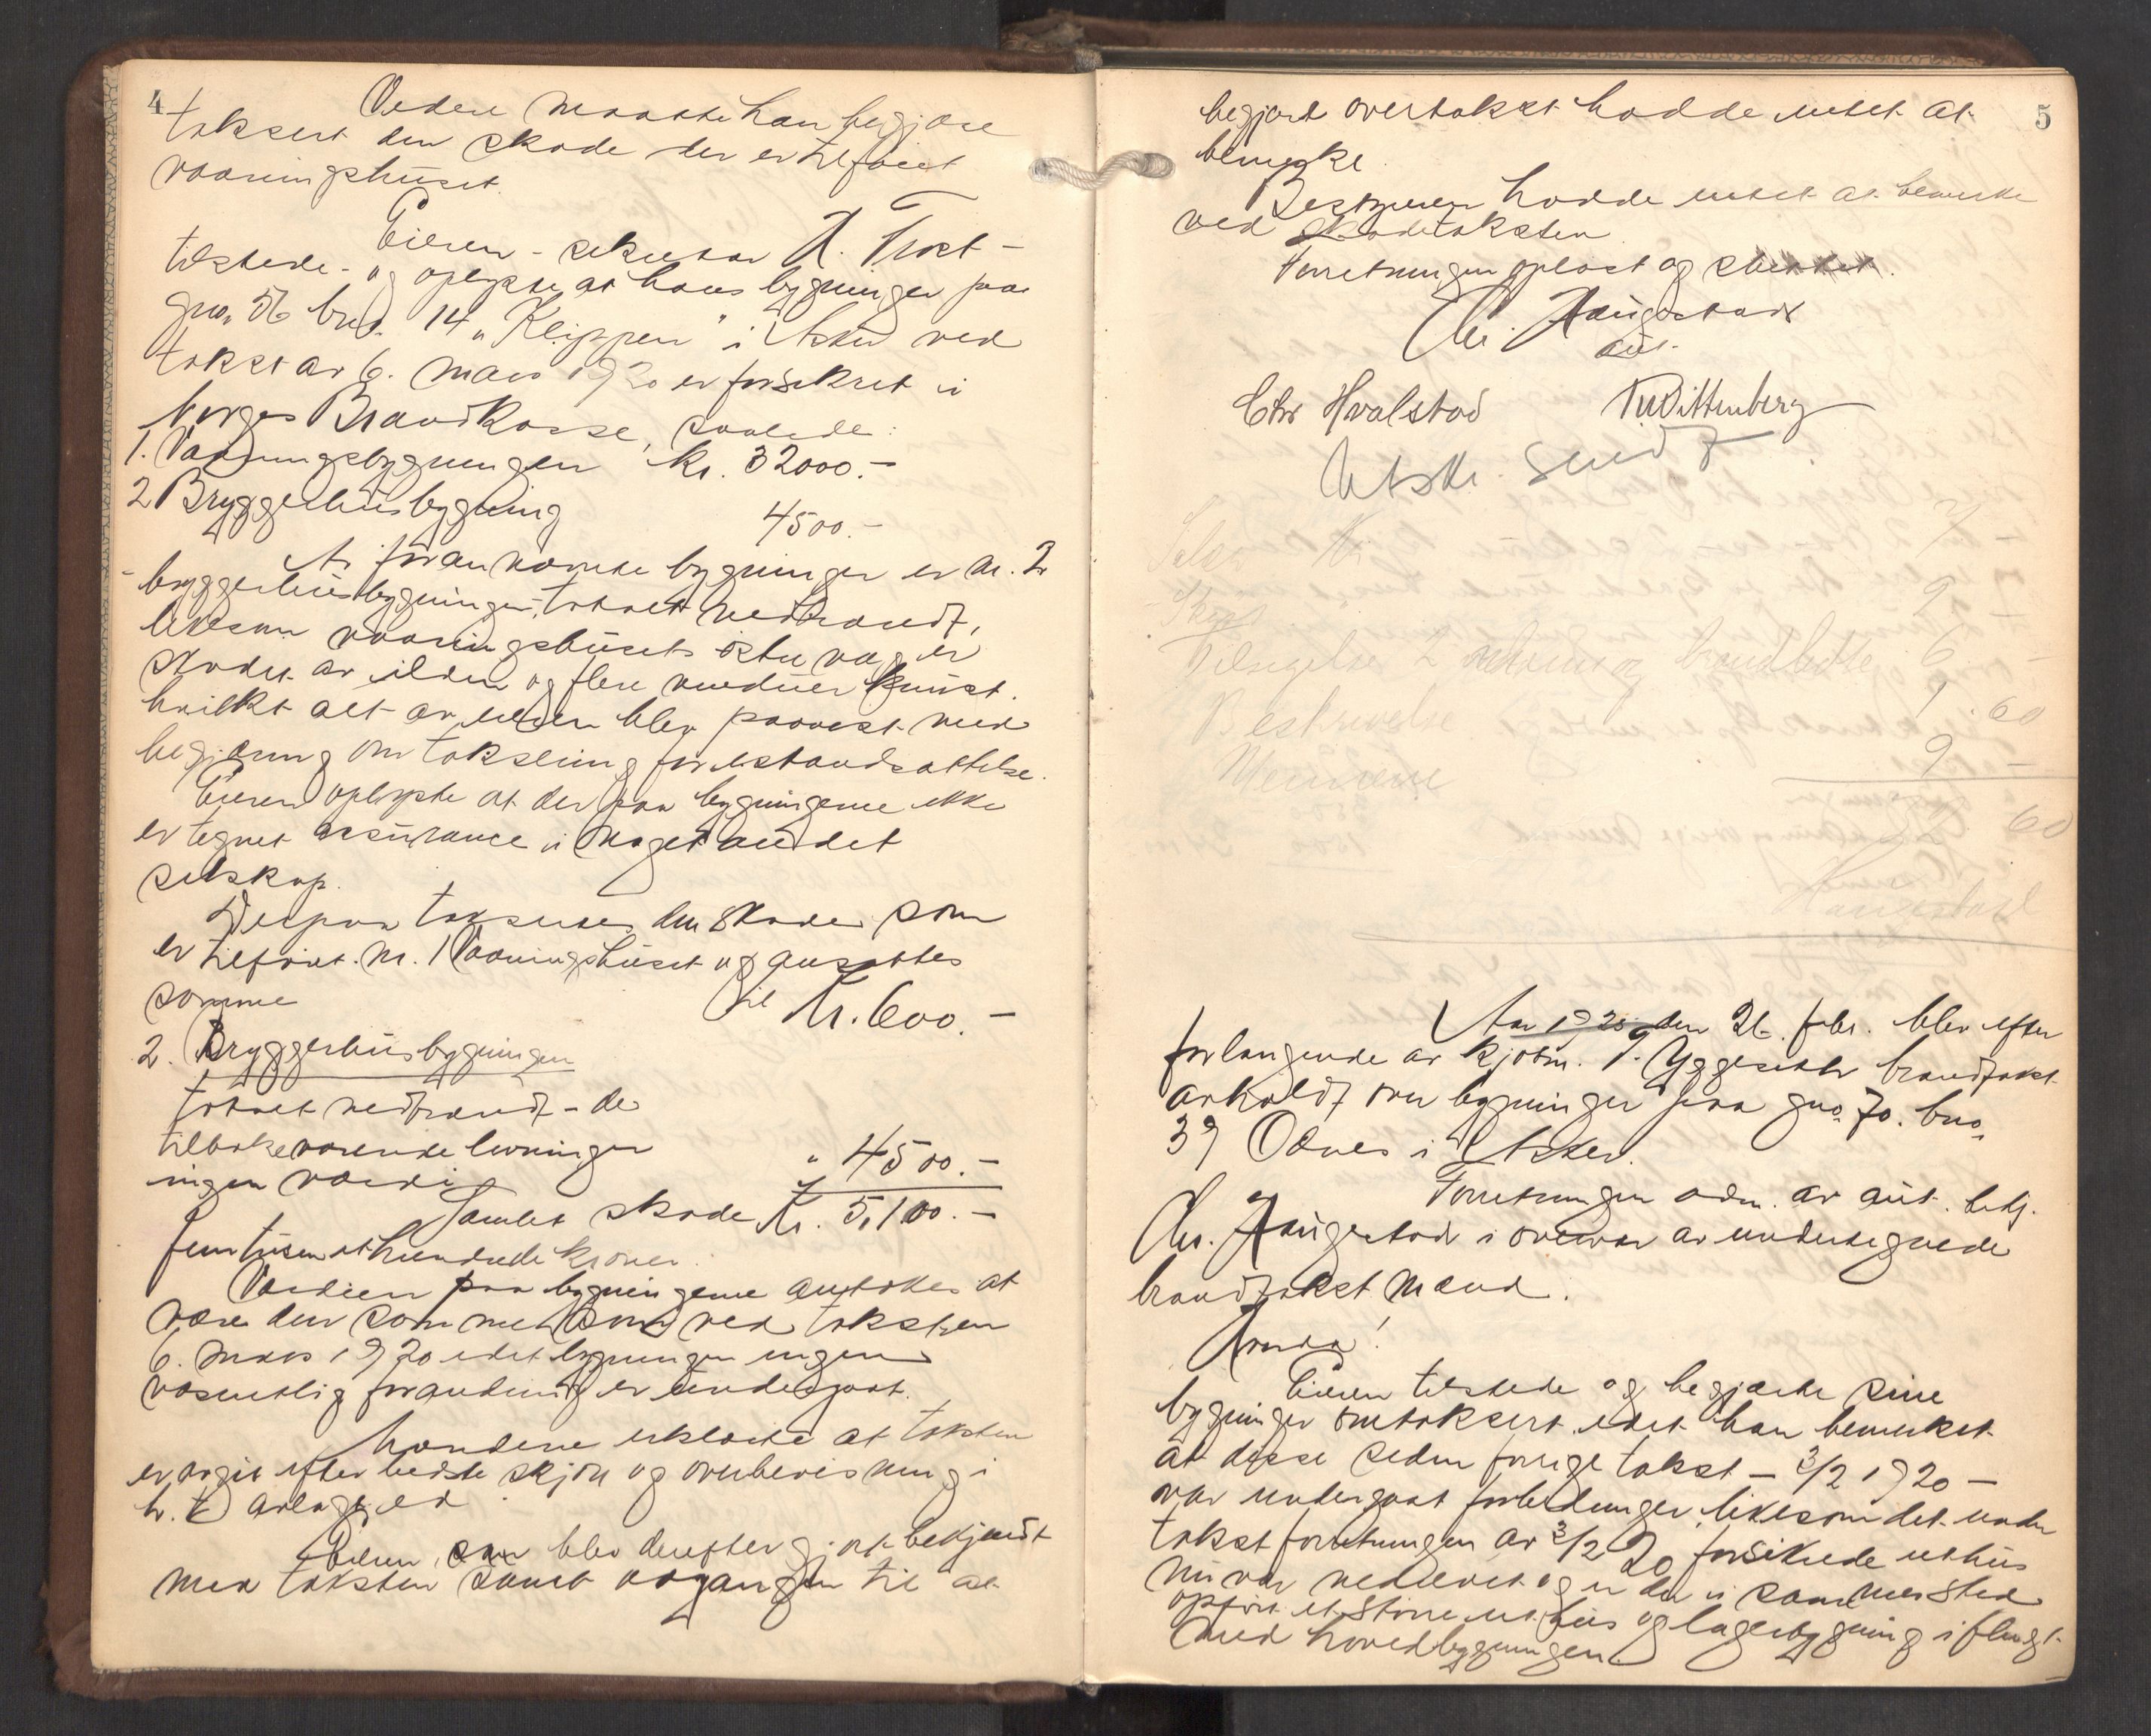 4
Videre maatte han begjære
taksert den skade der er tilføiet
vaaningshuset.
Eieren - sekretær H. Trost -
tilstede - og oplyste at hans bygninger paa
gno. 56 bno. 14 "Klippen" i Asker ved
takst av 6. mars 1920 er forsikret i
Norges Brandkasse, saalede:
1. Vaaningsbygningen kr. 32000.-
2 Bryggerhusbygning 4500.-
Av foran nævnte bygninger er nr. 2
bryggerhusbygningen, totalt nedbrændt,
likesom vaaningshusets østre væg er
skadet av ilden og flere vinduer knust.
hvilket alt av eieren blev paavist med
begjæring om taksering for istandsættelse.
Eieren oplyste at der paa bygningerne ikke
er tegnet assurance i noget andet
selskap.
Derpaa takseredes den skade som
er tilføiet nr. 1 Vaaningshuset og ansattes
samme til kr. 600.-
2. Bryggerhusbygningen
totalt nedbrændt - de
tilbakeværende levninger
ingen værdi " 4500.-
Samlet skade kr. 5,100.-
femtusen et hundrede kroner.
Værdien paa bygningerne antokes at
være den samme som ved taksten
6. mars 1920 idet bygningen ingen
væsentlig forandring er undergaat.
Mændene erklærte at taksten
er avgit efter bedste skjøn og overbevisning i
h. t. avlagt ed.
Eieren, som blev derefter gjort bekjendt
med taksten samt adgangen til at
5
begjære overtakst hadde intet at
bemerke.
Bestyreren hadde intet at bemerke
ved skadetaksten
Forretningen oplæst og sluttet.
Chr. Haugerstad
aut.
Chr Hvalstad Wittenberg
Utskr. sendt
Skyds
Tilsigelse 2 6 -
Beskrivelse 1.60
Mændene 9 -
60
Haugerstad
Aar 1925 den 26. febr. blev efter
forlangende av kjøbm. P. Yggeseth brandtakst
avholdt over bygninger paa gno. 70. bno.
39 Odnes i Asker.
Forretningen adm. av aut. betj.
Chr. Haugerstad i overvær av undertegnede
brandtakst mænd.
Eieren tilstede og begjærte sine
bygninger omtaksert, idet han bemerket
at disse siden forrige takst - 3/2 1920 -
var undergaat forbedringer, likesom det under
takstforretningen av 3/2 20 forsikrede uthus
nu var nedrevet og er der i sammested
opført et større uthus og lagerbygning i flugt
med hovedbygningen.